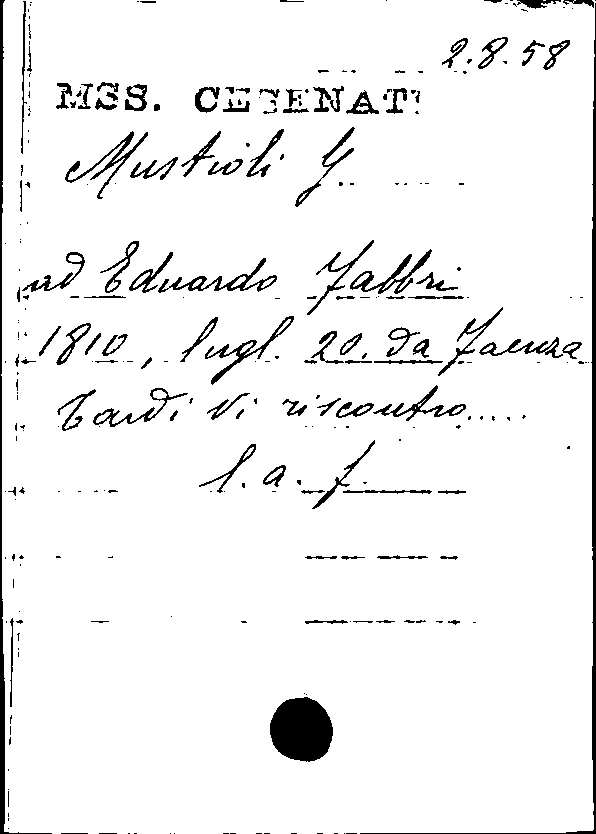 2.8.58
MSS. CESENATI
Mustioli G.
ad Eduardo Fabbri
1810, lugl. 20. da Faenza
Tardi vi riscontro.....
l. a. f.